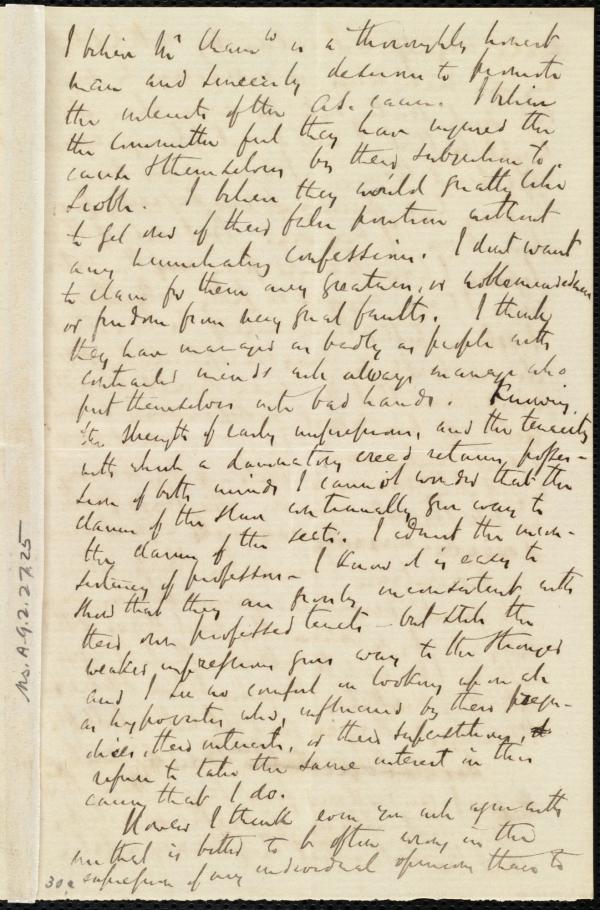 I believe Mr Cham is a thoroughly honest
man and sincerely desirous to promote
the interests of the A.S. cause. I believe
the Committee feel they have injured the
cause & themselves by their subscription to
Scoble. I believe they would greatly like
to get rid of their false position without
any humiliating confessions. I don't want
to claim for them any greatness, or noblemindedness
or freedom from very great faults. I think
they have managed as badly as people with
contracted minds will always manage who
put themselves into bad hands. Knowing
the strength of early impressions, and the tenacity
with which a damnatory creed retains posses-
sion of both minds I cannot wonder that the
claims of the slave continually give way to
the claims of the sects. I admit the incon-
sistency of professors - I know it is easy to
show that they are grossly inconsistent with
their own professed tenets - but still the
weaker impressions give way to the stronger
and I see no comfort in looking upon all
as hypocrites who, influenced by their preju-
dices, their interests, or their superstitions,
refuse to take the same interest in this
cause that I do.
However I think even you will agree with
me that is better to be often wrong in the
expression of my individual opinions than to
30a
Ms. A.9.2.27.25